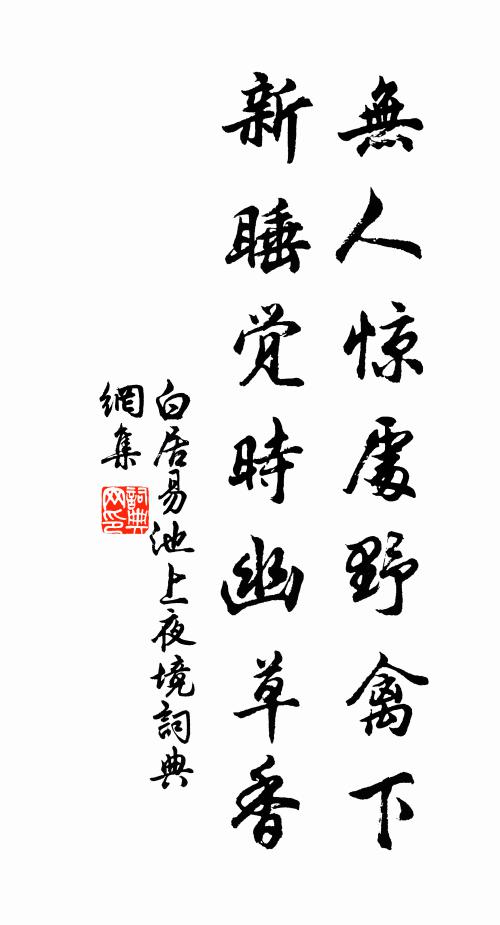 無人惊處野禽下
新睡觉時幽草香
白居易池上夜境詞典
網集
詞典网印